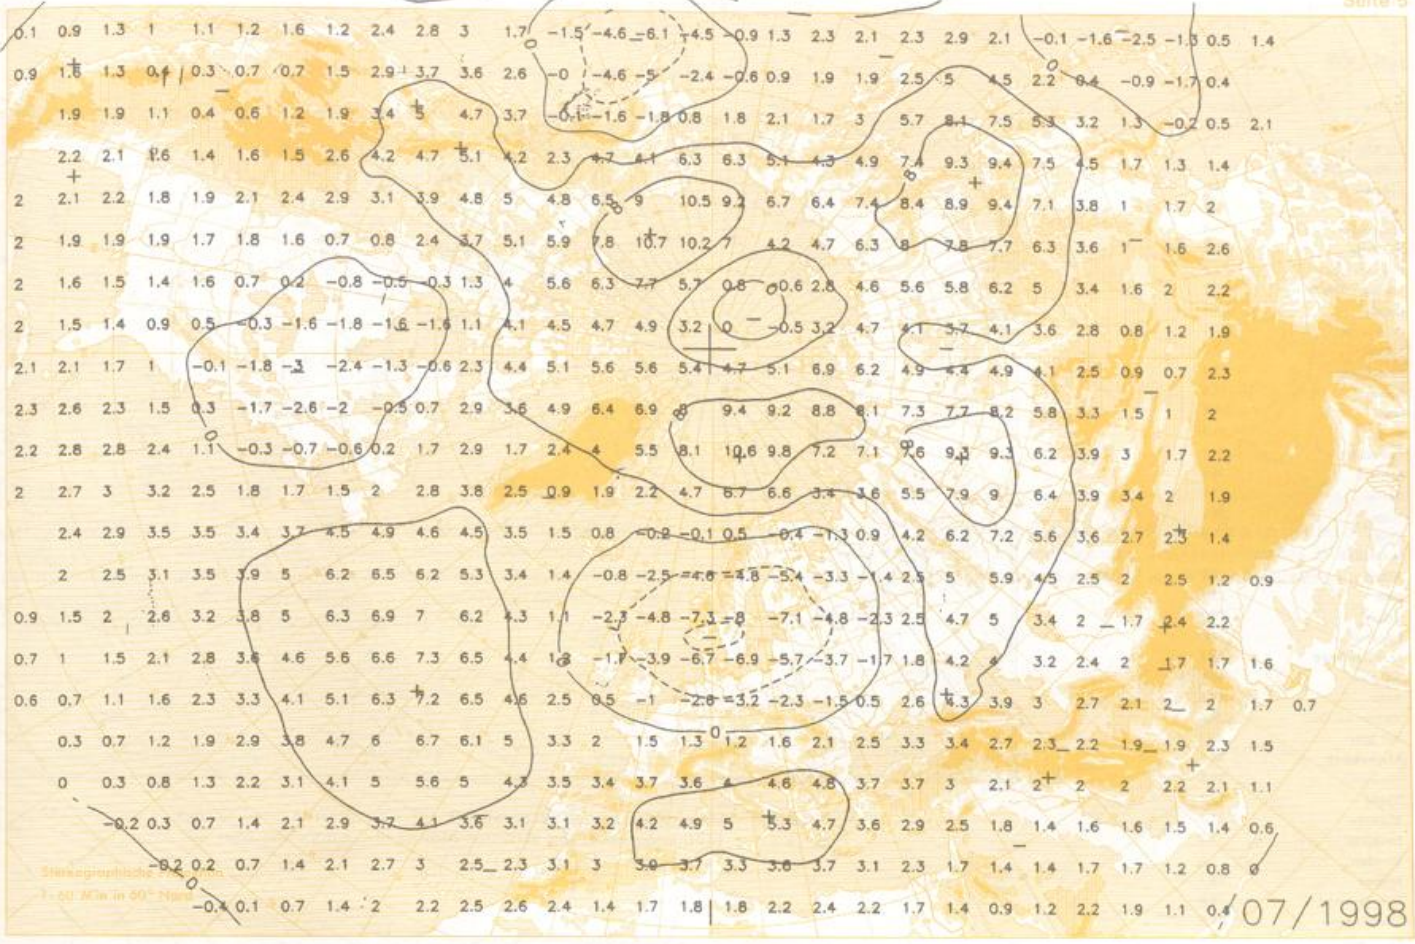 Seite 5
0.1 0.9 1.3 1 1.1 1.2 1.6 1.2 2.4 2.8 3 1.7 0 -1.5 -4.6 -6.1 -4.5 -0.9 1.3 2.3 2.1 2.3 2.9 2.1 -0.1 -1.6 -2.5 -1.3 0.5 1.4
0.9 1.6 1.3 0.4 0.3 0.7 0.7 1.5 2.9 3.7 3.6 2.6 -0 -4.6 -5 -2.4 -0.6 0.9 1.9 1.9 2.5 5 4.5 2.2 0 0.4 -0.9 -1.7 0.4
1.9 1.9 1.1 0.4 0.6 1.2 1.9 3.4 5 4.7 3.7 -0.1 -1.6 -1.8 0.8 1.8 2.1 1.7 3 5.7 8.1 7.5 5.3 3.2 1.3 -0.2 0.5 2.1
2.2 2.1 1.6 1.4 1.6 1.5 2.6 4.2 4.7 5.1 4.2 2.3 4.7 4.1 6.3 6.3 5.1 4.3 4.9 7.4 9.3 9.4 7.5 4.5 1.7 1.3 1.4
8
2 2.1 2.2 1.8 1.9 2.1 2.4 2.9 3.1 3.9 4.8 5 4.8 6.5 8 9 10.5 9.2 6.7 6.4 7.4 8.4 8.9 9.4 7.1 3.8 1 1.7 2
2 1.9 1.9 1.9 1.7 1.8 1.6 0.7 0.8 2.4 3.7 5.1 5.9 7.8 10.7 10.2 7 4.2 4.7 6.3 8 7.8 7.7 6.3 3.6 1 1.6 2.6
2 1.6 1.5 1.4 1.6 0.7 0.2 -0.8 -0.5 -0.3 1.3 4 5.6 6.3 7.7 5.7 0.8 0 -0.6 2.8 4.6 5.6 5.8 6.2 5 3.4 1.6 2 2.2
2 1.5 1.4 0.9 0.5 -0.3 -1.6 -1.8 -1.6 -1.6 1.1 4.1 4.5 4.7 4.9 3.2 0 -0.5 3.2 4.7 4.1 3.7 4.1 3.6 2.8 0.8 1.2 1.9
2.1 2.1 1.7 1 -0.1 -1.8 -3 -2.4 -1.3 -0.6 2.3 4.4 5.1 5.6 5.6 5.4 4.7 5.1 6.9 6.2 4.9 4.4 4.9 4.1 2.5 0.9 0.7 2.3
2.3 2.6 2.3 1.5 0.3 -1.7 -2.6 -2 -0.5 0.7 2.9 3.6 4.9 6.4 6.9 8 9.4 9.2 8.8 8.1 7.3 7.7 8.2 5.8 3.3 1.5 1 2
0 8
2.2 2.8 2.8 2.4 1.1 -0.3 -0.7 -0.6 0.2 1.7 2.9 1.7 2.4 4 5.5 8.1 10.6 9.8 7.2 7.1 7.6 9.3 9.3 6.2 3.9 3 1.7 2.2
2 2.7 3 3.2 2.5 1.8 1.7 1.5 2 2.8 3.8 2.5 0.9 1.9 2.2 4.7 6.7 6.6 3.4 3.6 5.5 7.9 9 6.4 3.9 3.4 2 1.9
2.4 2.9 3.5 3.5 3.4 3.7 4.5 4.9 4.6 4.5 3.5 1.5 0.8 -0.2 -0.1 0.5 -0.4 -1.3 0.9 4.2 6.2 7.2 5.6 3.6 2.7 2.3 1.4
2 2.5 3.1 3.5 3.9 5 6.2 6.5 6.2 5.3 3.4 1.4 -0.8 -2.5 -4.6 -4.8 -5.4 -3.3 -1.4 2.5 5 5.9 4.5 2.5 2 2.5 1.2 0.9
0.9 1.5 2 2.6 3.2 3.8 5 6.3 6.9 7 6.2 4.3 1.1 -2.3 -4.8 -7.3 -8 -7.1 -4.8 -2.3 2.5 4.7 5 3.4 2 1.7 2.4 2.2
0.7 1 1.5 2.1 2.8 3.6 4.6 5.6 6.6 7.3 6.5 4.4 1.2 0 -1.7 -3.9 -6.7 -6.9 -5.7 -3.7 -1.7 1.8 4.2 4 3.2 2.4 2 1.7 1.7 1.6
0.6 0.7 1.1 1.6 2.3 3.3 4.1 5.1 6.3 7.2 6.5 4.6 2.5 0.5 -1 -2.8 -3.2 -2.3 -1.5 0.5 2.6 4.3 3.9 3 2.7 2.1 2 2 1.7 0.7
0
0.3 0.7 1.2 1.9 2.9 3.8 4.7 6 6.7 6.1 5 3.3 2 1.5 1.3 1.2 1.6 2.1 2.5 3.3 3.4 2.7 2.3 2.2 1.9 1.9 2.3 1.5
0 0.3 0.8 1.3 2.2 3.1 4.1 5 5.6 5 4.3 3.5 3.4 3.7 3.6 4 4.6 4.8 3.7 3.7 3 2.1 2 2 2 2.2 2.1 1.1
-0.2 0.3 0.7 1.4 2.1 2.9 3.7 4.1 3.6 3.1 3.1 3.2 4.2 4.9 5 5.3 4.7 3.6 2.9 2.5 1.8 1.4 1.6 1.6 1.5 1.4 0.6
-0.2 0.2 0.7 1.4 2.1 2.7 3 2.5 2.3 3.1 3 3.9 3.7 3.3 3.6 3.7 3.1 2.3 1.7 1.4 1.4 1.7 1.7 1.2 0.8 0
Stereographische
1:60 Mio in 60° Nord
0
-0.4 0.1 0.7 1.4 2 2.2 2.5 2.6 2.4 1.4 1.7 1.8 1.8 2.2 2.4 2.2 1.7 1.4 0.9 1.2 2.2 1.9 1.1 0.4
07/1998